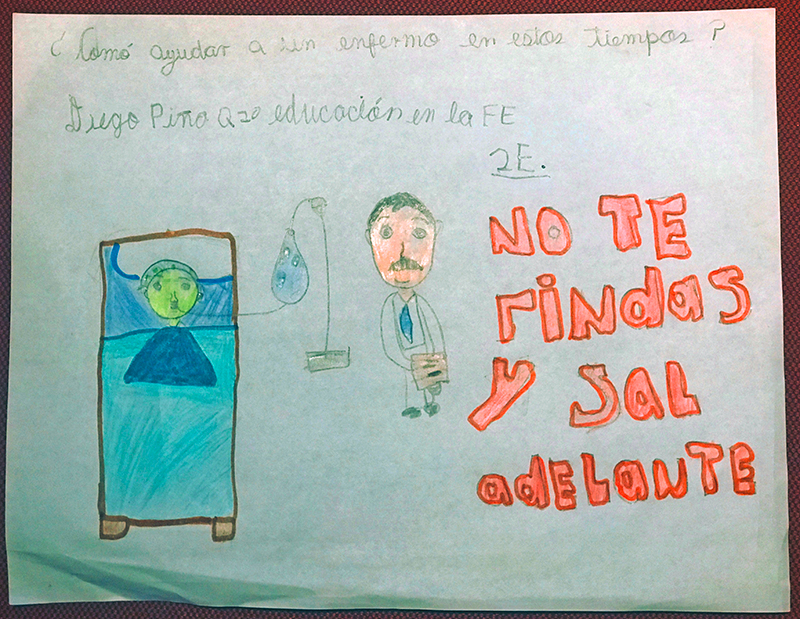 ¿Comó ayudar a un enfermo en estos tiempos?
Diego Piña Qzo educación en la FE
2E.
NO TE
rindas
Y SaL
adELaNTE